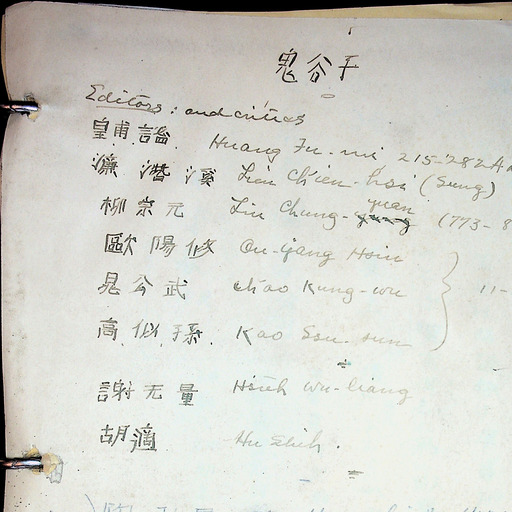 鬼谷子
Editors: and critics
皇甫謐 Huang Fu-mi 215-282 A
濂潛溪 Lien Ch'ien-hsi (Sung)
柳宗元 Liu Chung-yuan (773-8
歐陽修 Ou-yang Hsiu
晁公武 Ch'ao Kung-wu 11-
高似孫 Kao Ssu-sun
謝无量 Hsieh Wu-liang
胡適 Hu Shih.